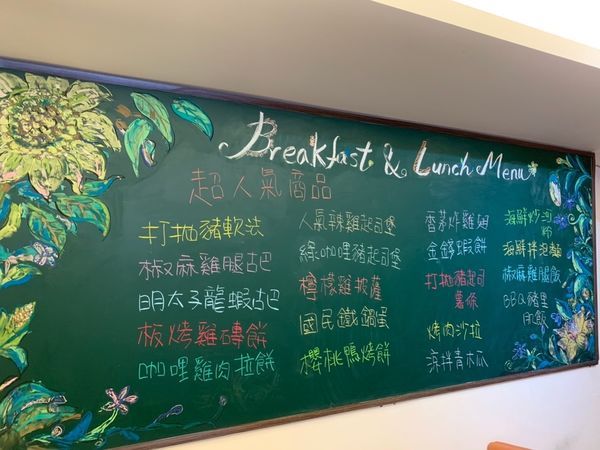 Breakfast & Lunch Menu
超人氣商品
打拋豬軟法
椒麻雞腿古巴
明太子龍蝦古巴
板烤雞磚餅
咖哩雞肉拉餅
人氣辣雞起司堡
綠咖哩豬起司堡
檸檬雞披薩
國民鐵鍋蛋
櫻桃鴨烤餅
香茅炸雞翅
金錢蝦餅
打拋豬起司
薯條
烤肉沙拉
涼拌青木瓜
海鮮炒河
粉
海鮮拌泡麵
椒麻雞腿飯
BBQ豬里
肌飯